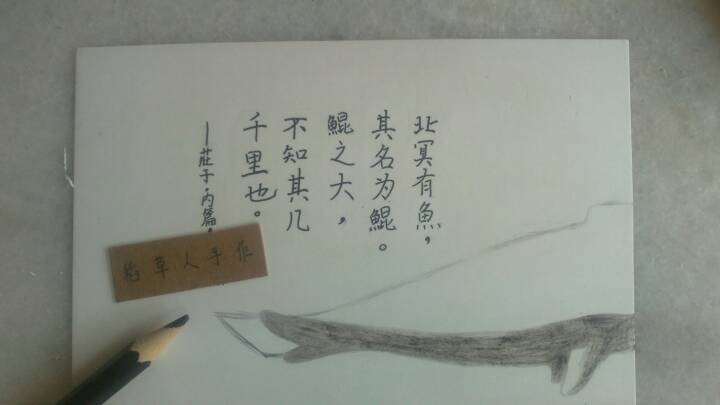 北冥有魚，
其名为鯤。
鯤之大，
不知其几
千里也。
—莊子·内篇
草人手作